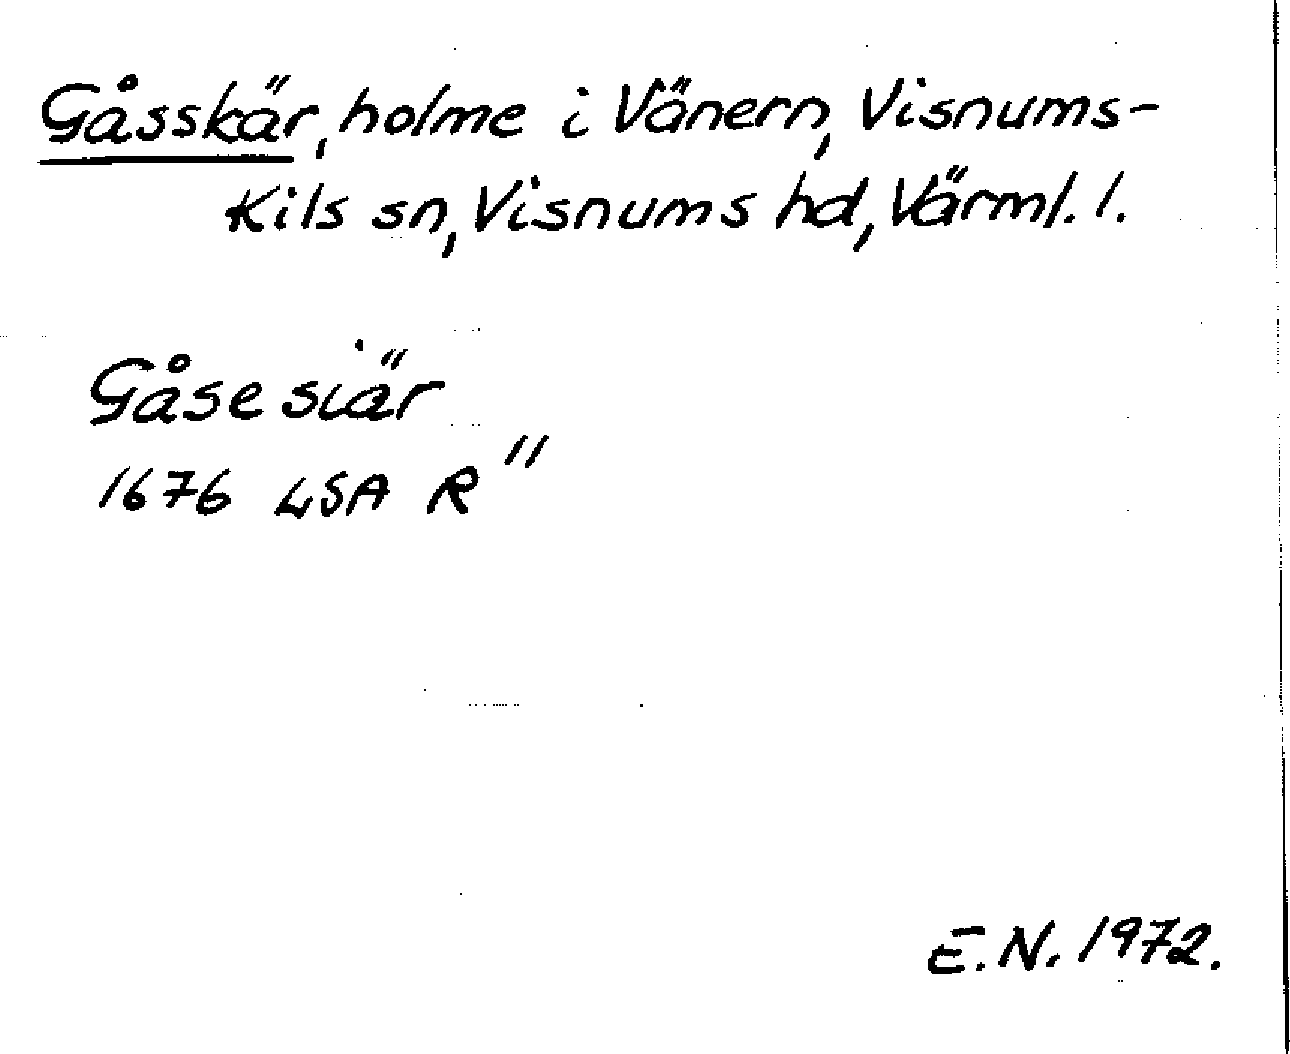 Gåsskär, holme i Vänern, Visnums-
Kils sn, Visnums hd, Värml. l.
Gåse siär
1676 LSA R"
E.N. 1972.